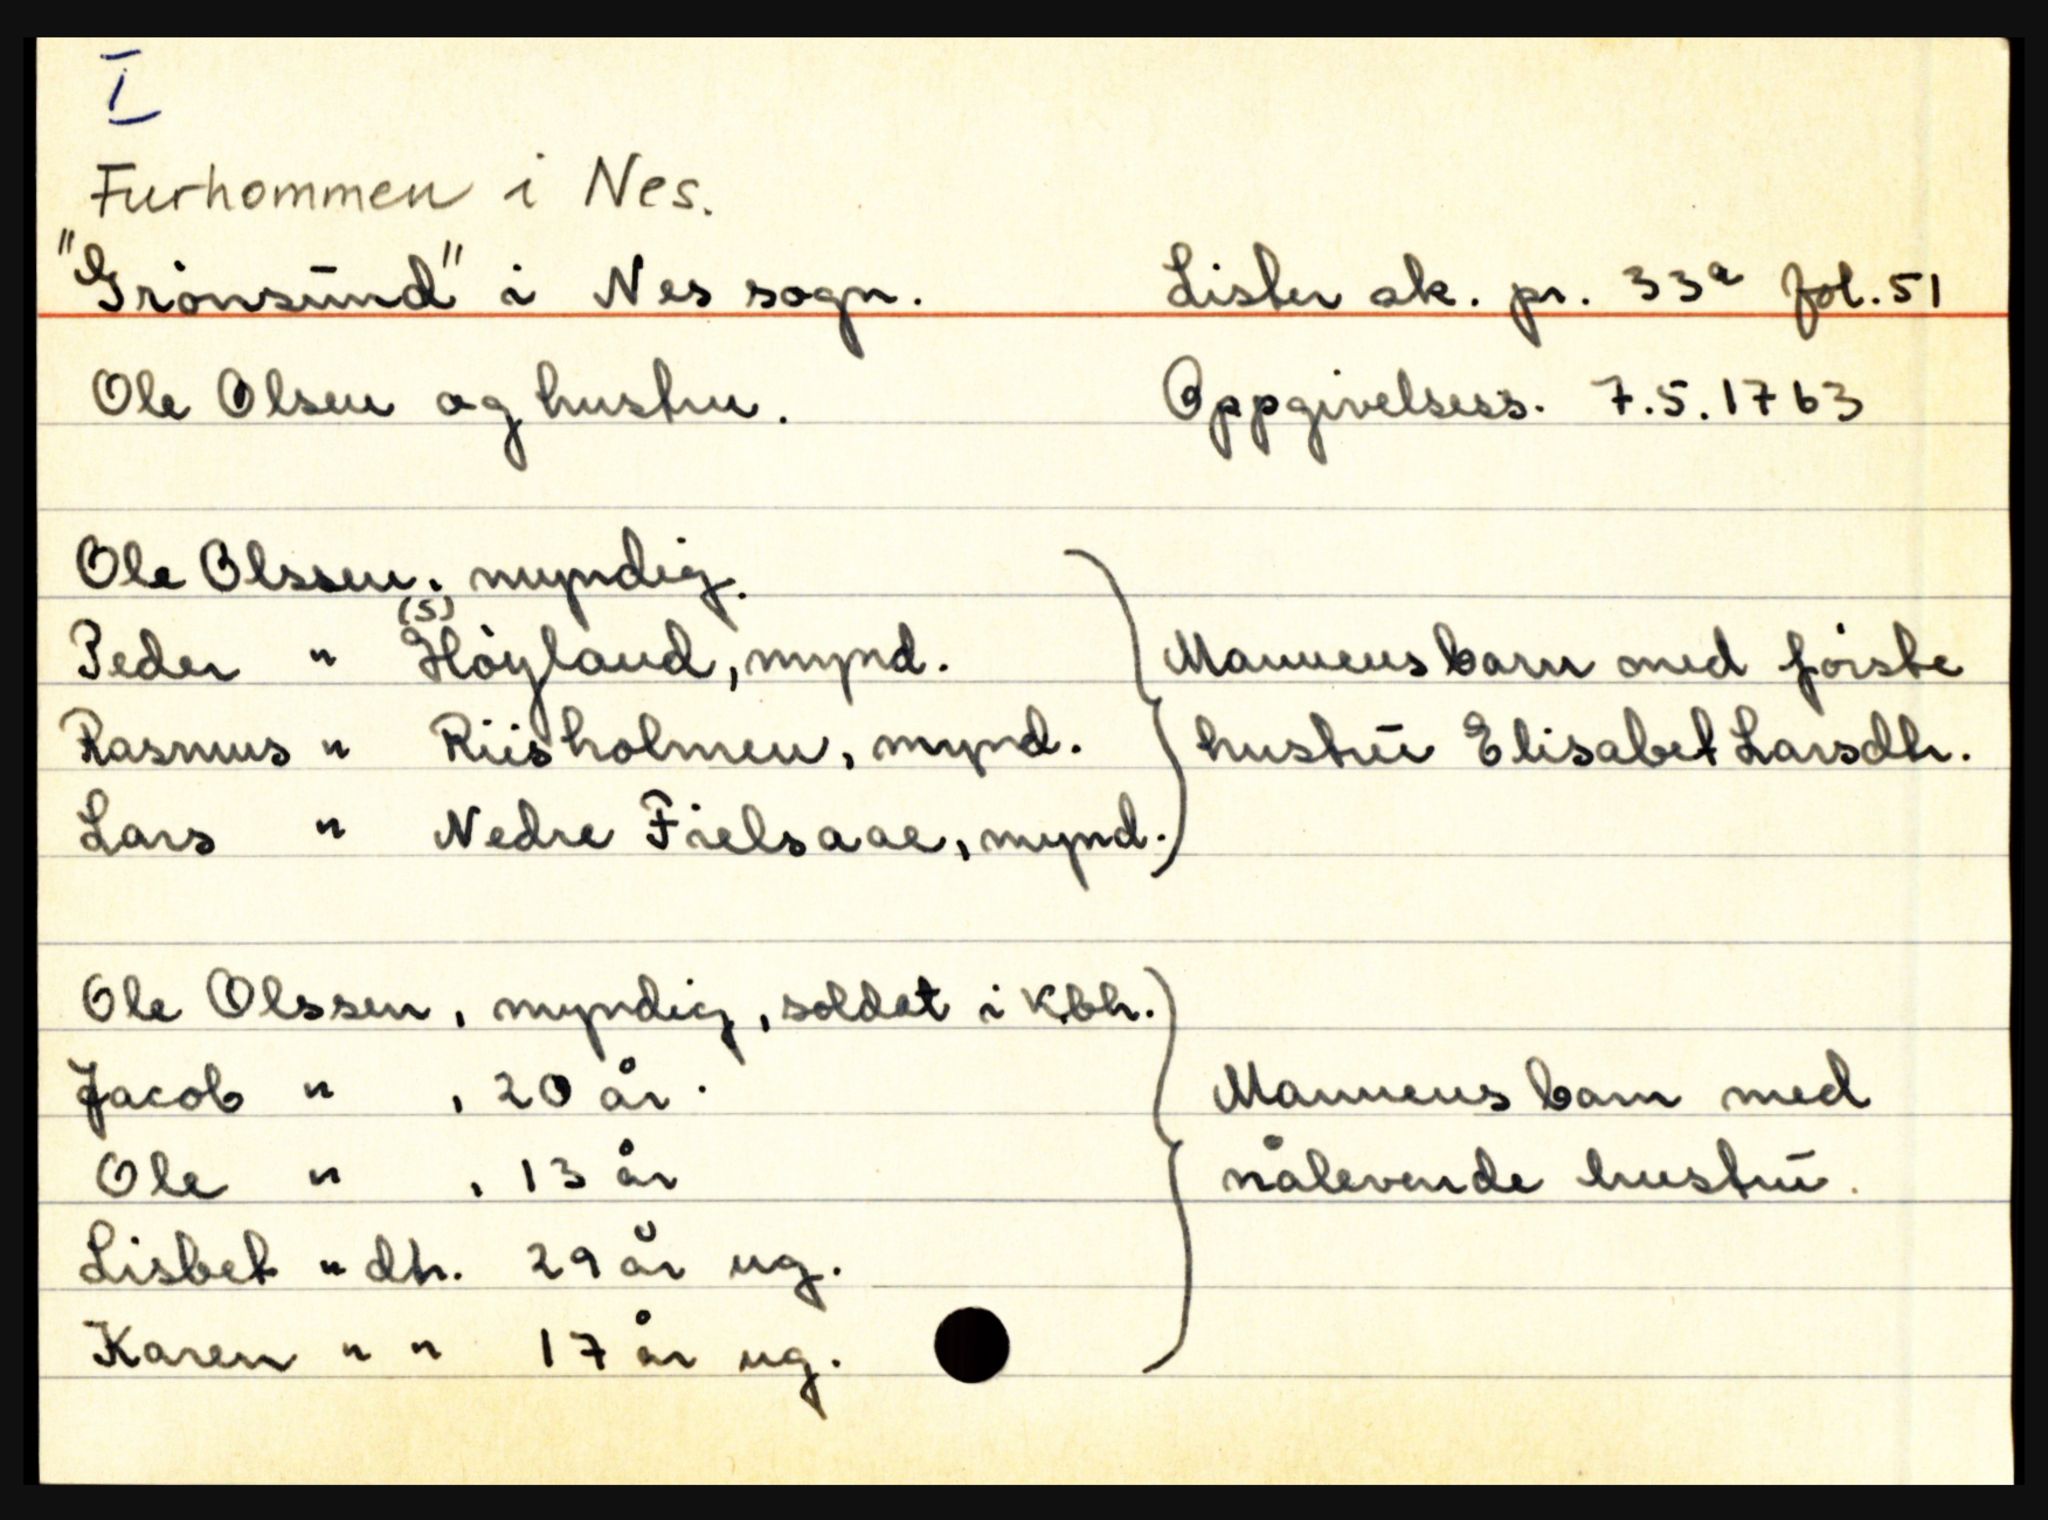 I
Furhommen i Nes.
"Grönsünd" i Nes sogn. Lister sk. pr. 33a fol. 51
Ole Olsen og hustru. Oppgivelsess. 7.5.1763
Ole Olssen, myndig.
(S)
Peder " Høyland, mynd. Mannens barn med første
Rasmus " Riisholmen, mynd. hustrü Elisabet Larsdtr.
Lars " Nedre Fielsaae, mynd.
Ole Olssen, myndig, soldat i Kbh.
Jacob " , 20 år. Mannens barn med
Ole " , 13 år nålevende hustrü.
Lisbet " dtr. 29 år ug.
Karen " " 17 år ug.